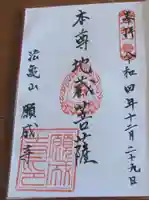 奉拝 令和四年十二月二十九日
本尊地蔵菩薩
法亀山 願成寺